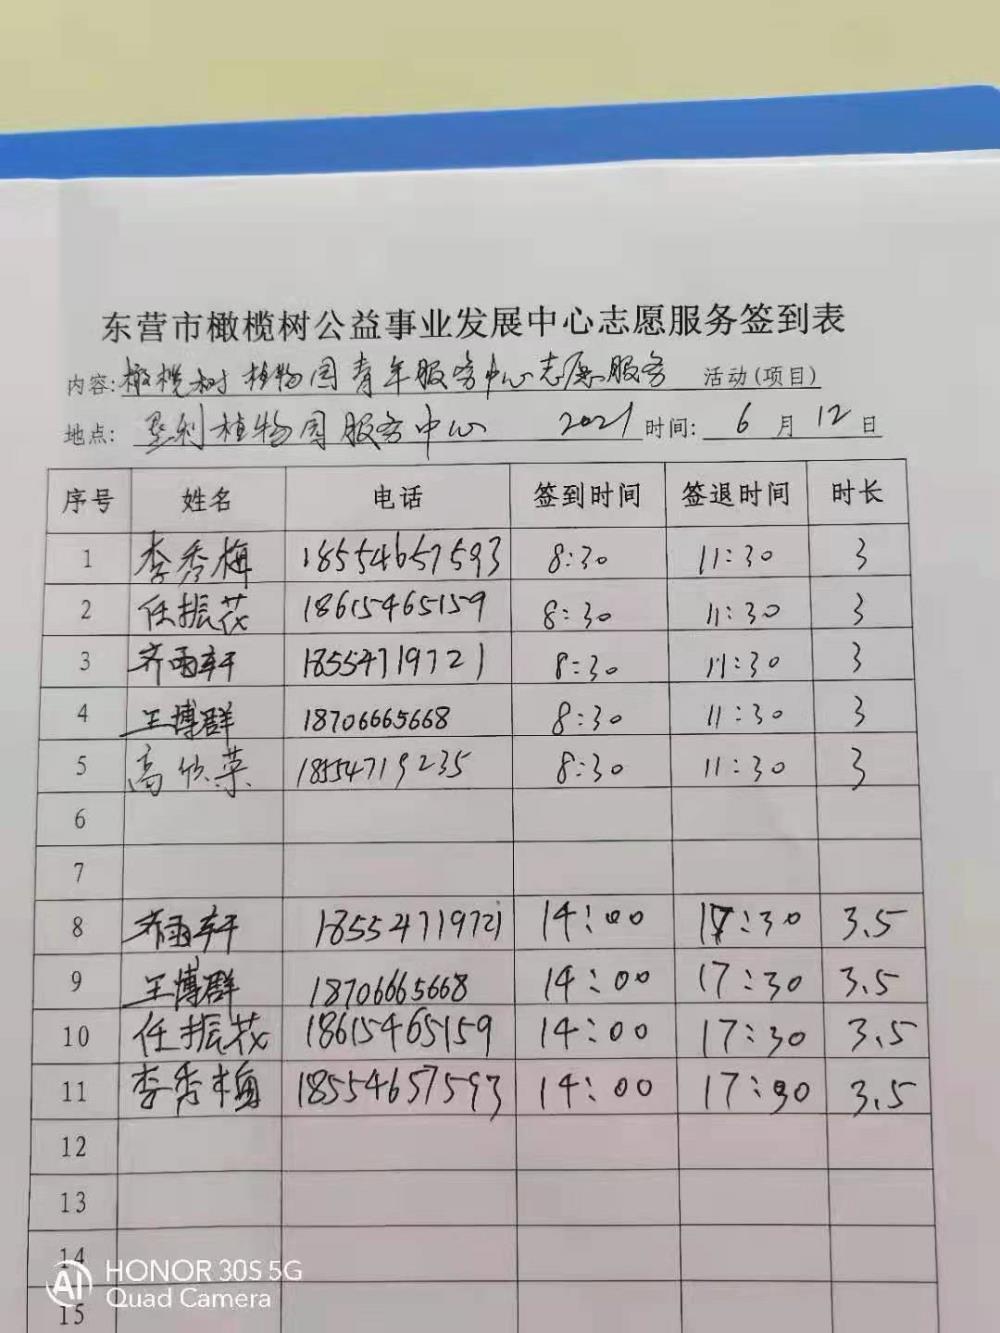 东营市橄榄树公益事业发展中心志愿服务签到表
内容:橄榄树植物园青年服务中心志愿服务 活动(项目)
地点:垦利植物园服务中心 2021时间:6月12日
序号 姓名 电话 签到时间 签退时间 时长
1 李秀梅 18554657593 8:30 11:30 3
2 任振茂 18615465159 8:30 11:30 3
3 齐雨轩 18554719721 8:30 11:30 3
4 王博群 18706665668 8:30 11:30 3
5 高欣荣 18554719235 8:30 11:30 3
6
7
8 齐雨轩 18554719721 14:00 17:30 3.5
9 王博群 18706665668 14:00 17:30 3.5
10 任振茂 18615465159 14:00 17:30 3.5
11 李秀梅 18554657593 14:00 17:30 3.5
12
13
14
15
AI HONOR 30S 5G
Quad Camera